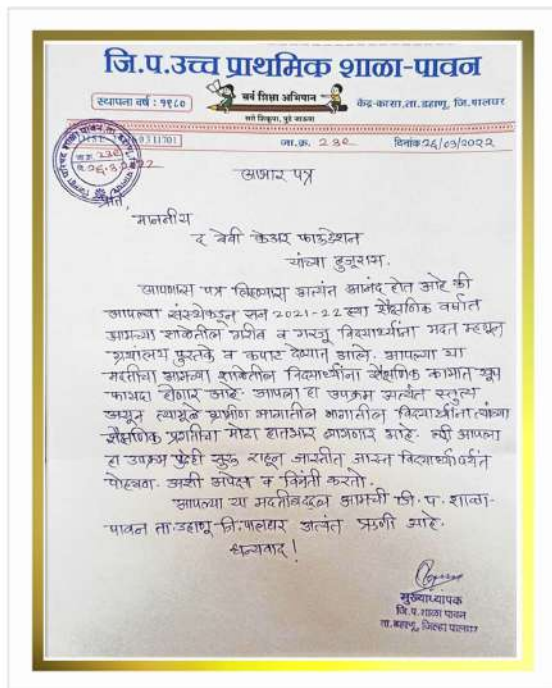 जि.प.उच्च प्राथमिक शाळा-पावन
स्थापना वर्ष : १९८०
सर्व शिक्षा अभियान
सारे शिकूया, पुढे जाऊया
केंद्र-कासा,ता.डहाणू, जि.पालघर
जा.क्र. 230
दिनांक 26/03/2022
आभार पत्र
प्रति,
माननीय
द बेबी केअर फाऊंडेशन
यांच्या हुजूरास.
आपणास पत्र लिहिण्यास अत्यंत आनंद होत आहे की
आपल्या संस्थेकडून सन 2021-22 ह्या शैक्षणिक वर्षात
आमच्या शाळेतील गरीब व गरजू विद्यार्थ्यांना मदत म्हणून
ग्रंथालय पुस्तके व कपाट देण्यात आले. आपल्या या
मदतीचा आमच्या शाळेतील विद्यार्थ्यांना शैक्षणिक कामात खूप
फायदा होणार आहे. आपला हा उपक्रम अत्यंत स्तुत्य
असून त्यामुळे ग्रामीण भागातील भागातील विद्यार्थ्यांना त्यांच्या
शैक्षणिक प्रगतीचा मोठा हातभार लागणार आहे. तरी आपला
हा उपक्रम पुढेही सुरू राहून जास्तीत जास्त विद्यार्थ्यांपर्यंत
पोहचावा. अशी अपेक्षा व विनंती करतो.
आपल्या या मदतीबद्दल आमची जि. प. शाळा-
पावन ता.डहाणू जि.पालघर अत्यंत ऋणी आहे.
धन्यवाद !
मुख्याध्यापक
जि.प.शाळा पावन
ता.डहाणू, जिल्हा पालघर